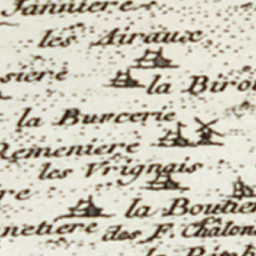 Janniere
les Airaux
siere
la Biro
la Burcerie
Remeniere
les Vrignais
re
la Boutier
netiere
des F. Châlon
la